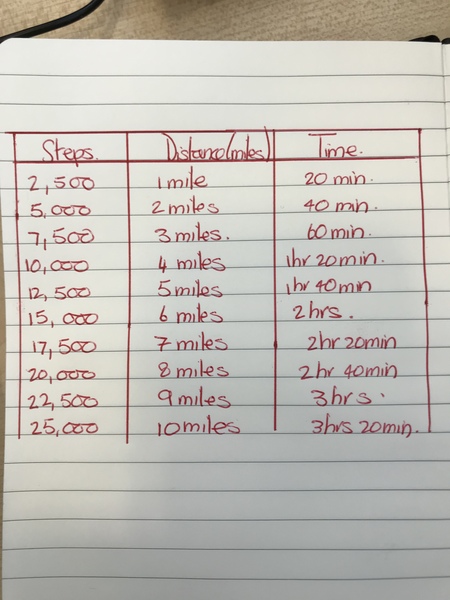 Steps. Distance(miles) Time.
2,500 1mile 20 min.
5,000 2 miles 40 min.
7,500 3 miles. 60 min.
10,000 4 miles 1hr 20min.
12,500 5miles 1hr 40min
15,000 6 miles 2hrs.
17,500 7 miles 2hr 20min
20,000 8 miles 2hr 40min
22,500 9miles 3hrs.
25,000 10 miles 3hrs 20min.